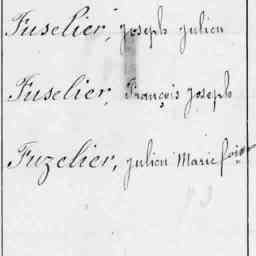 Fuselier, Joseph Julien
Fuselier, François Joseph
Fuzelier, Julien Marie